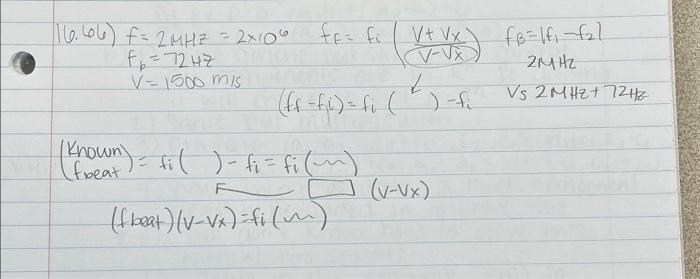 16.66) f = 2MHz = 2x10⁶ f_F = f_i (V+Vx / V-Vx) f_B=|f₁-f₂|
f_b = 72 Hz 2MHz
V = 1500 m/s
(f_f - f_i) = f_i ( ) - f_i Vs 2MHz + 72Hz
(Known fbeat) = f_i ( ) - f_i = f_i ( )
(V-Vx)
(fbeat)(V-Vx) = f_i ( )